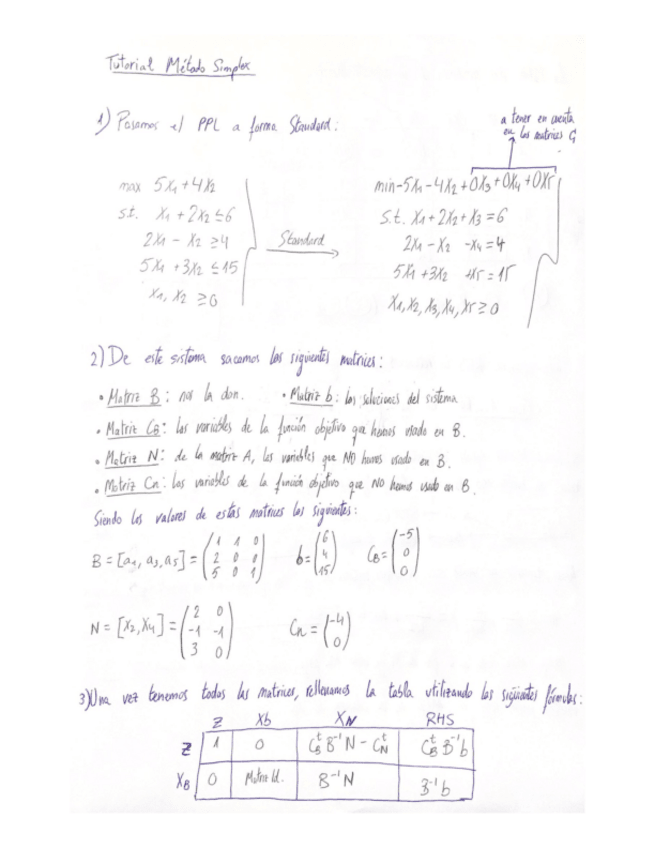 Tutorial Método Simplex
1) Pasamos el PPL a forma Standard:
a tener en cuenta
en las matrices C
max 5x₁+4x₂
s.t. x₁+2x₂≤6
2x₁-x₂≥4
5x₁+3x₂≤15
x₁, x₂ ≥0
Standard
min-5x₁-4x₂+0x₃+0x₄+0x5
s.t. x₁+2x₂+x₃=6
2x₁-x₂ -x₄=4
5x₁+3x₂ +x5=15
x₁,x₂,x₃,x₄,x5≥0
2) De este sistema sacamos las siguientes matrices:
• Matriz B: nos la dan. • Matriz b: las soluciones del sistema
• Matriz CB: las variables de la función objetivo que hemos usado en B.
• Matriz N: de la matriz A, las variables que NO hemos usado en B.
• Matriz Cn: las variables de la función objetivo que NO hemos usado en B.
Siendo los valores de estas matrices los siguientes:
B=[a₁, a₃, a5]= (1 1 0
2 0 0
5 0 1)
b= (6
4
15)
CB= (-5
0
0)
N=[x₂,x₄]= (2 0
-1 -1
3 0)
Cn= (-4
0)
3) Una vez tenemos todas las matrices, rellenamos la tabla utilizando las siguientes fórmulas:
Z Xb XN RHS
Z 1 0 CBᵗ B⁻¹N - CNᵗ CBᵗ B⁻¹b
XB 0 Matriz Id. B⁻¹N B⁻¹b